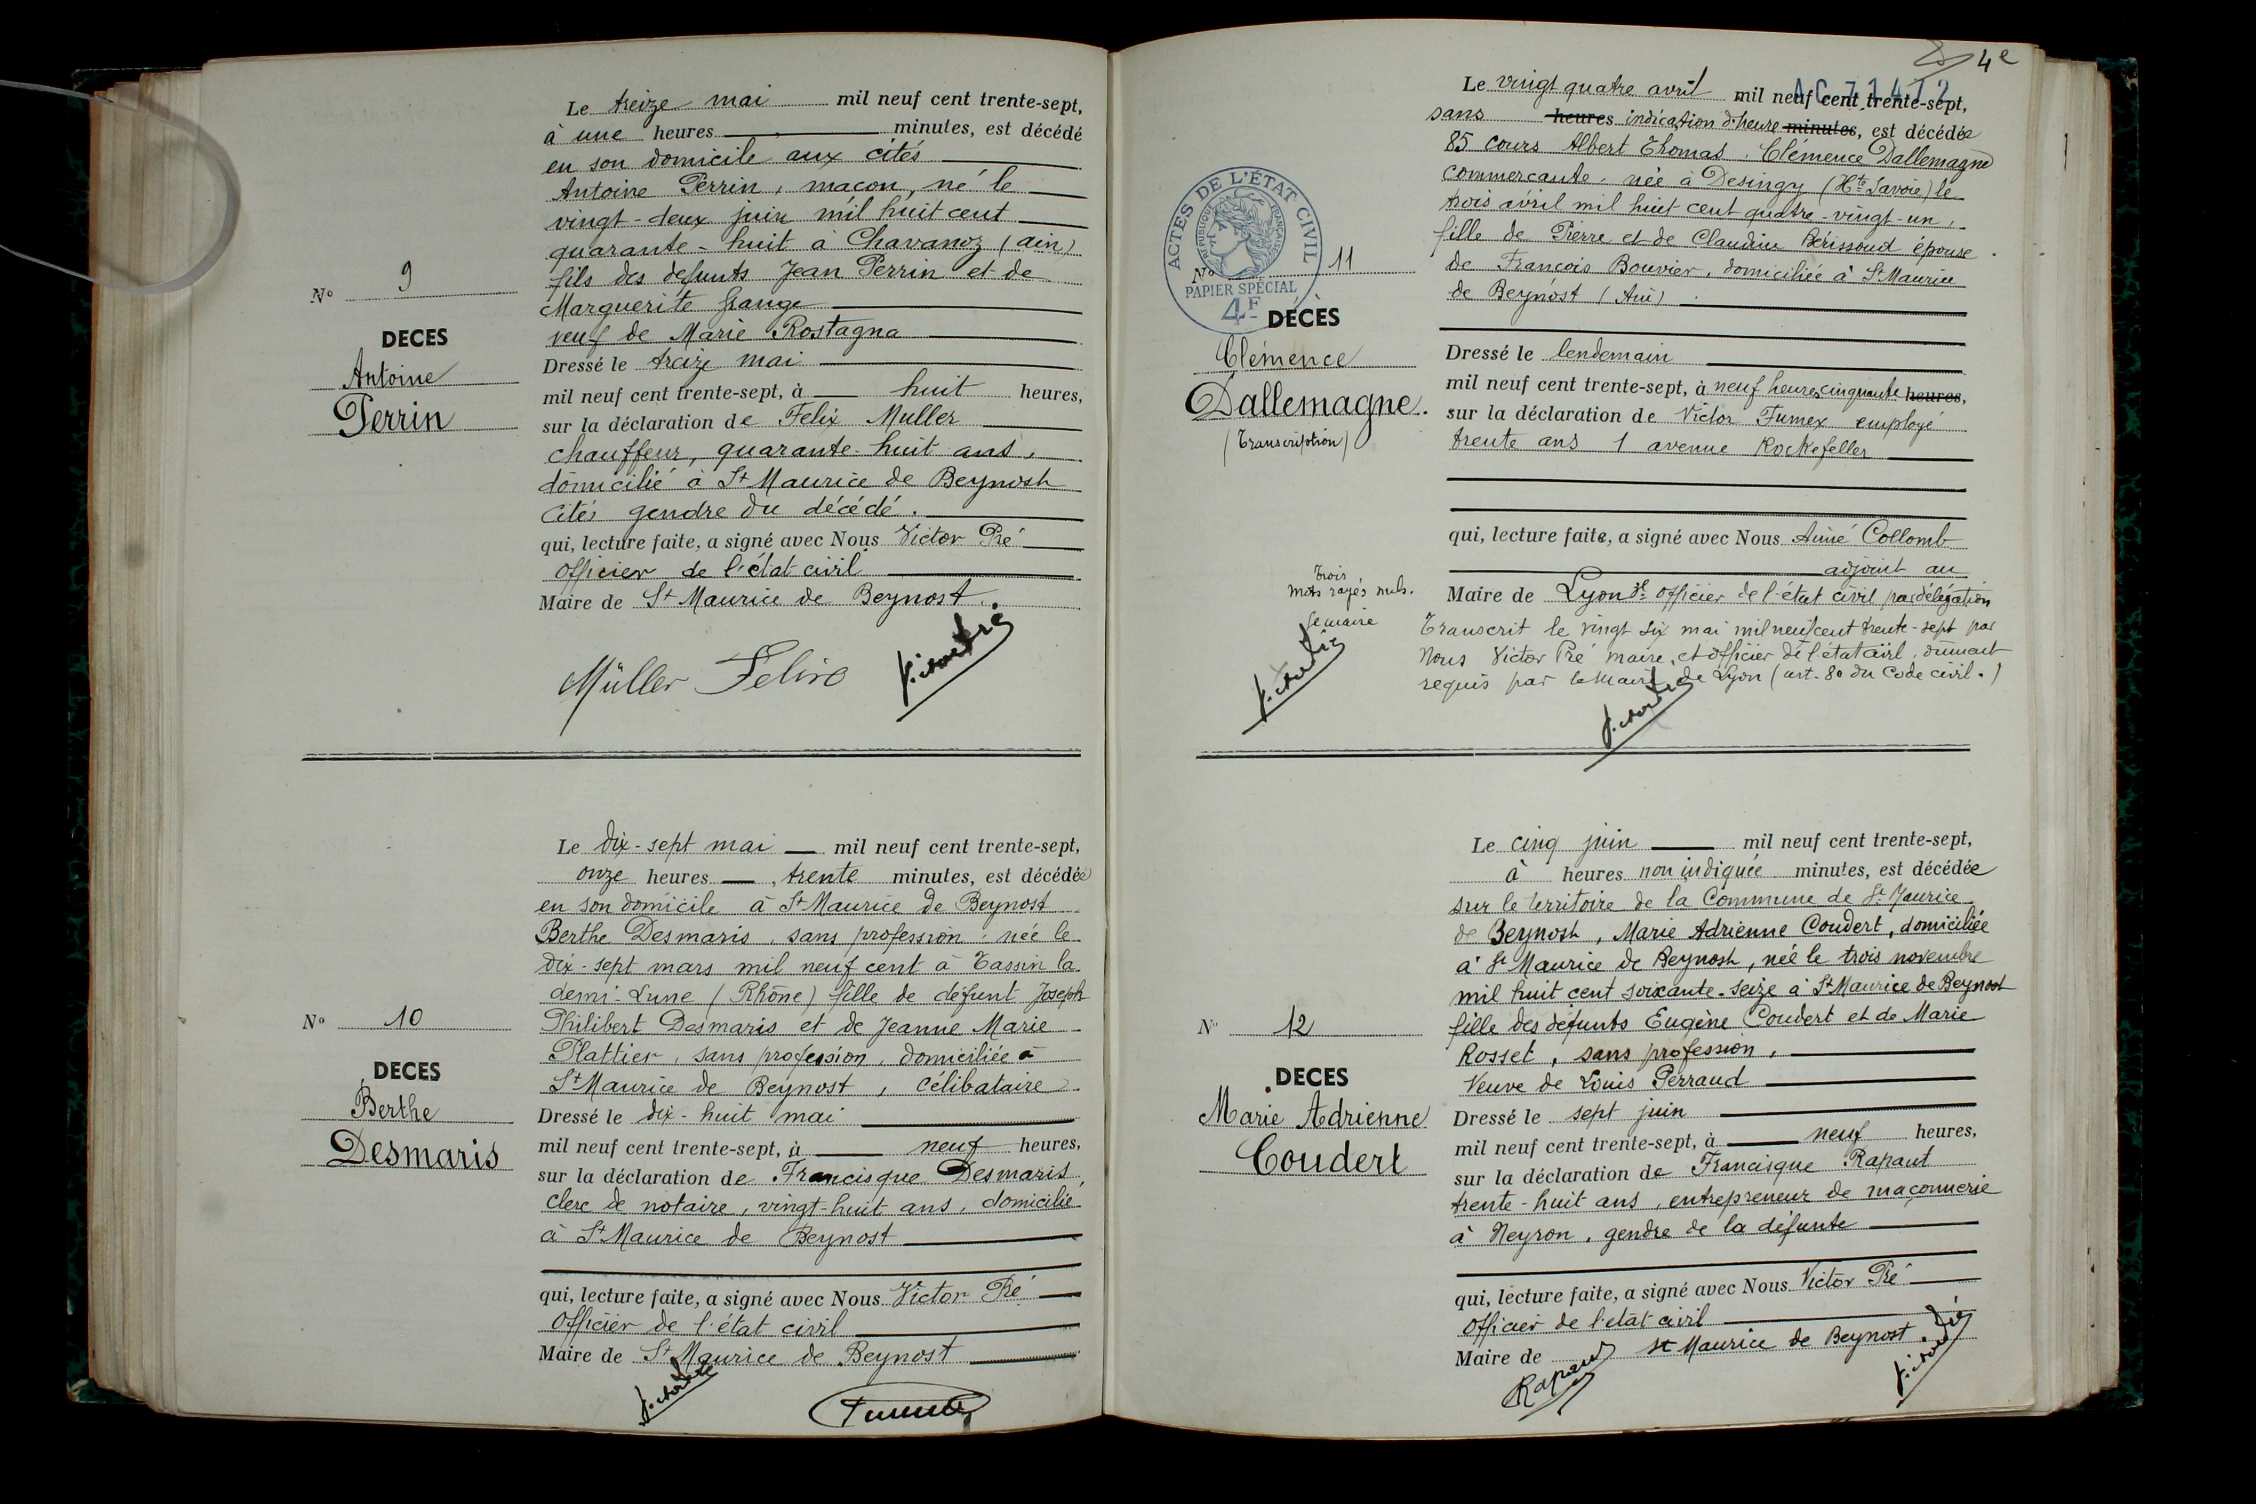 Le treize mai mil neuf cent trente-sept,
à une heures minutes, est décédé
en son domicile aux cités
Antoine Perrin, maçon, né le
vingt-deux juin mil huit cent
quarante-huit à Chavanoz (ain)
fils des defunts Jean Perrin et de
Marguerite Grange
veuf de Marie Rostagna
Dressé le treize mai
mil neuf cent trente-sept, à huit heures,
sur la déclaration de Felix Muller
chauffeur, quarante-huit ans,
domicilié à St Maurice de Beynost
Cités gendre du décédé.
qui, lecture faite, a signé avec Nous Victor Pré
officier de l'état civil
Maire de St Maurice de Beynost.
Müller Felix
Victor Pré
No 9
DECES
Antoine
Perrin
Le dix-sept mai mil neuf cent trente-sept,
onze heures, trente minutes, est décédée
en son domicile à St Maurice de Beynost
Berthe Desmaris, sans profession, née le
dix-sept mars mil neuf cent à Tassin la
demi-Lune (Rhône) fille de défunt Joseph
Philibert Desmaris et de Jeanne Marie
Plattier, sans profession, domiciliée à
St Maurice de Beynost, célibataire
Dressé le dix-huit mai
mil neuf cent trente-sept, à neuf heures,
sur la déclaration de Francisque Desmaris,
clerc de notaire, vingt-huit ans, domicilié
à St Maurice de Beynost
qui, lecture faite, a signé avec Nous Victor Pré
Officier de l'état civil
Maire de St Maurice de Beynost
Victor Pré
No 10
DECES
Berthe
Desmaris
4e
AC 71472
Le vingt quatre avril mil neuf cent trente-sept,
sans heures indication d'heure minutes, est décédée
85 cours Albert Thomas. Clémence Dallemagne
commercante. née à Desingy (Hte Savoie) le
trois avril mil huit cent quatre-vingt-un,
fille de Pierre et de Claudine Bérissoud épouse
de François Bouvier, domiciliée à St Maurice
de Beynost (Ain)
Dressé le lendemain
mil neuf cent trente-sept, à neuf heures cinquante heures,
sur la déclaration de Victor Fumex employé
trente ans 1 avenue Rockefeller
qui, lecture faite, a signé avec Nous Aimé Collomb
adjoint au
Maire de Lyon officier de l'état civil par délégation
Transcrit le vingt six mai mil neuf cent trente-sept par
Nous Victor Pré maire, et officier de l'état civil, dument
requis par le Maire de Lyon (art. 80 du Code civil.)
Victor Pré
ACTES DE L'ÉTAT CIVIL
RÉPUBLIQUE FRANÇAISE
PAPIER SPÉCIAL
4F
No 11
DÉCÈS
Clémence
Dallemagne.
(Transcription)
Trois
mots rayés nuls.
Le maire
Victor Pré
Le cinq juin mil neuf cent trente-sept,
à heures non indiquée minutes, est décédée
sur le territoire de la Commune de St Maurice
de Beynost, Marie Adrienne Coudert, domiciliée
à St Maurice de Beynost, née le trois novembre
mil huit cent soixante-seize à St Maurice de Beynost
fille des défunts Eugène Coudert et de Marie
Rosset, sans profession,
Veuve de Louis Perraud
Dressé le sept juin
mil neuf cent trente-sept, à neuf heures,
sur la déclaration de Francisque Rapaut
trente-huit ans, entrepreneur de maçonnerie
à Neyron, gendre de la défunte
qui, lecture faite, a signé avec Nous Victor Pré
officier de l'état civil
Maire de St Maurice de Beynost.
Rapaut
Victor Pré
No 12
DECES
Marie Adrienne
Coudert